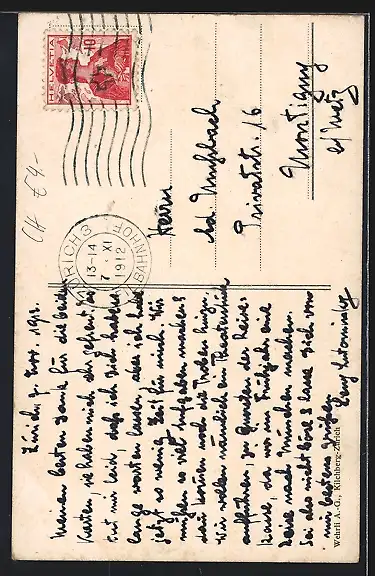 HELVETIA
10
ZÜRICH 8
13-14
7. XI
1912
BAHNHOF
CH £4.-
Herrn
Ad. Muschbach
Privatstr. 16
Montigny
b/ Metz
Zürich, 7. Nov. 1912.
Meinen besten Dank für die beiden
Karten, sie haben mich sehr gefreut. Es
tut mir leid, dass ich Dich habe so
lange warten lassen, aber ich habe
jetzt so wenig Zeit für mich. Wir
müssen so viel Aufgaben machen &
dazu kommen noch die Proben hinzu,
wir wollen nämlich ein Theaterstück
aufführen, zu Gunsten der Reise-
kasse, da wir im Frühjahr eine
Reise nach München machen.
Sei also nicht böse & lasse Dich von
mir bestens grüßen
Wehrli A.-G., Kilchberg-Zürich